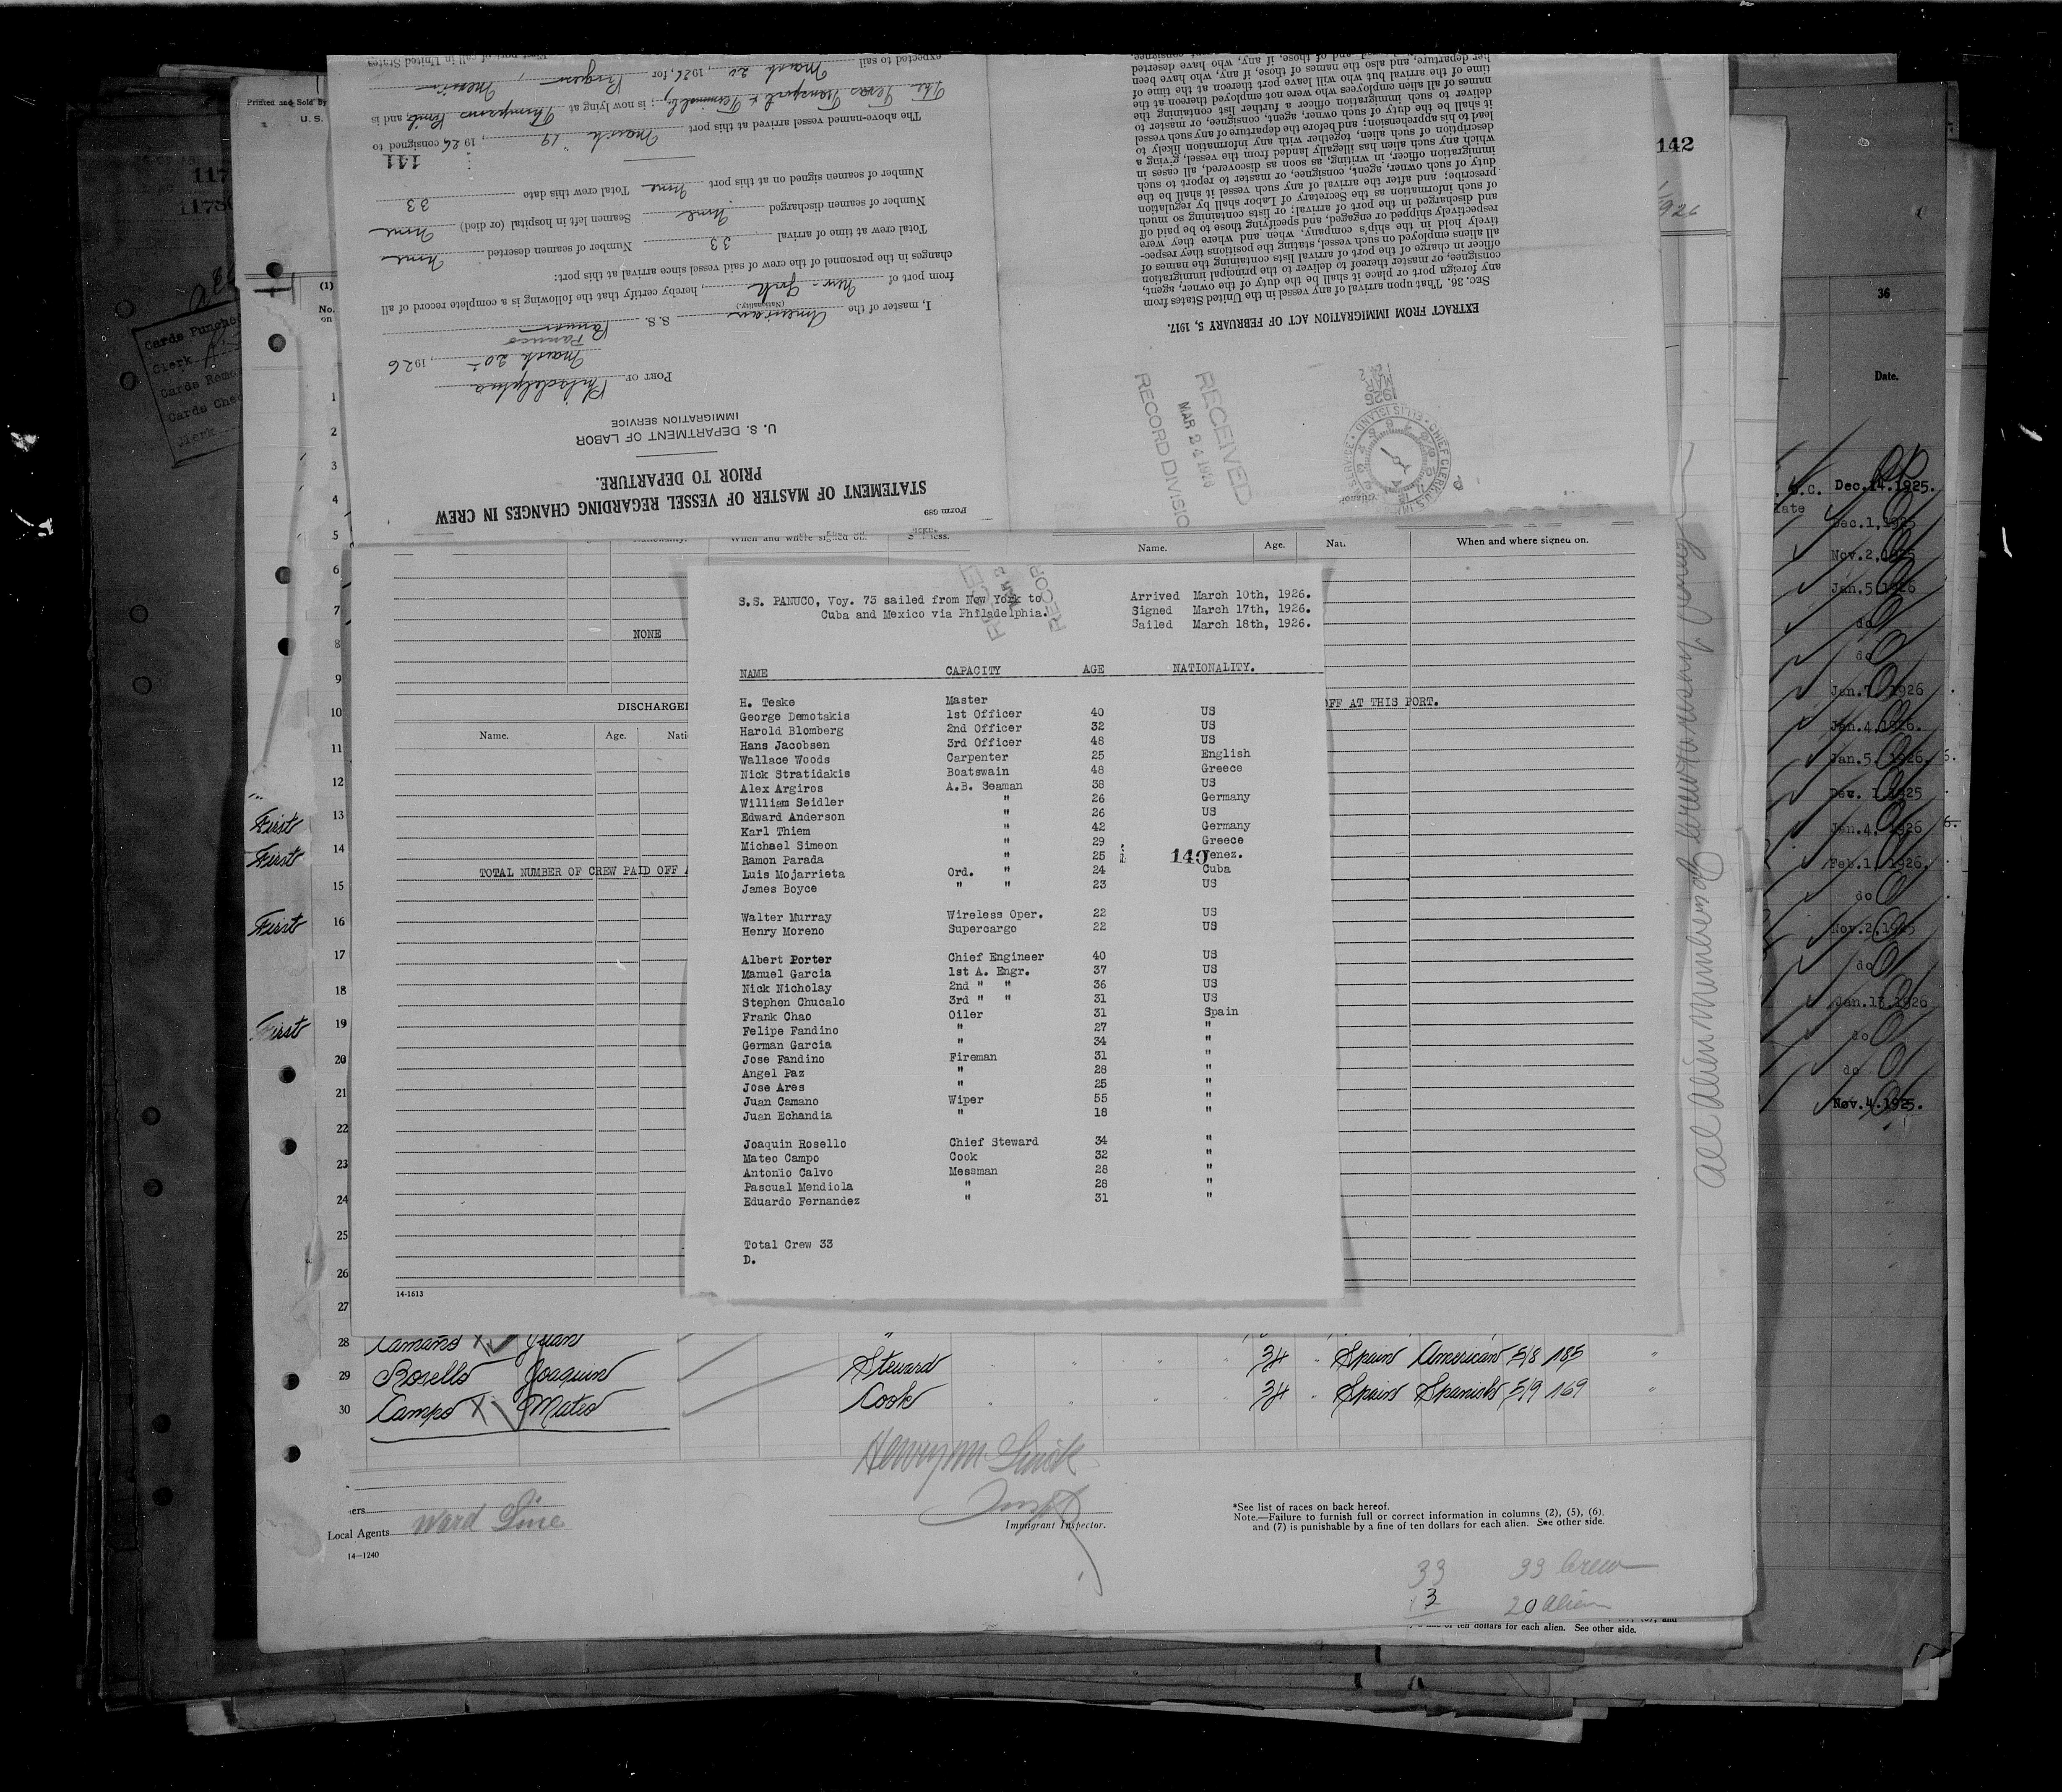 Printed and Sold by
U. S.
142
STATEMENT OF MASTER OF VESSEL REGARDING CHANGES IN CREW
PRIOR TO DEPARTURE.
Form 689
U. S. DEPARTMENT OF LABOR
IMMIGRATION SERVICE
PORT OF Philadelphia
March 20, 1926
Panuco
I, master of the American S. S. Panuco
(Nationality)
from port of New York, hereby certify that the following is a complete record of all
changes in the personnel of the crew of said vessel since arrival at this port:
Total crew at time of arrival 33 Number of seamen deserted None
Number of seamen discharged None Seamen left in hospital (or died) None
Number of seamen signed on at this port None Total crew this date 33
141
The above-named vessel arrived at this port March 19, 1926 consigned to
The Texas Transport & Terminal; is now lying at Thompsons Point, and is
expected to sail March 20, 1926, for Progreso, Mexico
EXTRACT FROM IMMIGRATION ACT OF FEBRUARY 5, 1917.
SEC. 36. That upon arrival of any vessel in the United States from
any foreign port or place it shall be the duty of the owner, agent,
consignee, or master thereof to deliver to the principal immigration
officer in charge of the port of arrival lists containing the names of
all aliens employed on such vessel, stating the positions they respec-
tively hold in the ship's company, when and where they were
respectively shipped or engaged, and specifying those to be paid off
and discharged in the port of arrival; or lists containing so much
of such information as the Secretary of Labor shall by regulation
prescribe; and after the arrival of any such vessel it shall be the
duty of such owner, agent, consignee, or master to report to such
immigration officer, in writing, as soon as discovered, all cases in
which any such alien has illegally landed from the vessel, giving a
description of such alien, together with any information likely to
lead to his apprehension; and before the departure of any such vessel
it shall be the duty of such owner, agent, consignee, or master to
deliver to such immigration officer a further list containing the
names of all alien employees who were not employed thereon at the
time of the arrival but who will leave port thereon at the time of
her departure, and also the names of those, if any, who have been
RECEIVED
MAR 24
RECORD DIVISIO
Name. Age. Nat. When and where signed on.
NONE
DISCHARGE
OFF AT THIS PORT.
Name. Age.
TOTAL NUMBER OF CREW PAID OFF
14-1613
S.S. PANUCO, Voy. 73 sailed from New York to
Cuba and Mexico via Philadelphia.
Arrived March 10th, 1926.
Signed March 17th, 1926.
Sailed March 18th, 1926.
NAME CAPACITY AGE NATIONALITY.
H. Teske Master
George Demotakis 1st Officer 40 US
Harold Blomberg 2nd Officer 32 US
Hans Jacobsen 3rd Officer 48 US
Wallace Woods Carpenter 25 English
Nick Stratidakis Boatswain 48 Greece
Alex Argiros A.B. Seaman 38 US
William Seidler " 26 Germany
Edward Anderson " 26 US
Karl Thiem " 42 Germany
Michael Simeon " 29 Greece
Ramon Parada " 25 Venez.
140
Luis Mojarrieta Ord. " 24 Cuba
James Boyce " " 23 US
Walter Murray Wireless Oper. 22 US
Henry Moreno Supercargo 22 US
Albert Porter Chief Engineer 40 US
Manuel Garcia 1st A. Engr. 37 US
Nick Nicholay 2nd " " 36 US
Stephen Chucalo 3rd " " 31 US
Frank Chao Oiler 31 Spain
Felipe Fandino " 27 "
German Garcia " 34 "
Jose Fandino Fireman 31 "
Angel Paz " 28 "
Jose Ares " 25 "
Juan Camano Wiper 55 "
Juan Echandia " 18 "
Joaquin Rosello Chief Steward 34 "
Mateo Campo Cook 32 "
Antonio Calvo Messman 28 "
Pascual Mendiola " 28 "
Eduardo Fernandez " 31 "
Total Crew 33
D.
1
2
3
4
5
6
7
8
9
10
11
12
First 13
First 14
15
First 16
17
18
First 19
20
21
22
23
24
25
26
27
28 Camano Juan "
29 Rosello Joaquin Steward 34 " Spain American 5/8 185 "
30 Campo Mateo Cook 34 " Spain Spanish 5/9 169 "
Local Agents Ward Line
Immigrant Inspector.
14—1240
*See list of races on back hereof.
Note.—Failure to furnish full or correct information in columns (2), (5), (6),
and (7) is punishable by a fine of ten dollars for each alien. See other side.
33 33 Crew
13 20 alien
of ten dollars for each alien. See other side.
All alien members of crew
36
Date.
Dec.14.1925.
Dec.1,1925
Nov.2,1925
Jan.5,1926
do
do
Jan.7,1926
Jan.4,1926.
Jan.5,1926.
Dec. 1,1925
Jan.4,1926
Feb.1,1926.
do
Nov.2,1925
do
Jan.13,1926
do
do
Nov.4.1925.
Cards Punche
Clerk
Cards Remo
Cards Chec
Clerk